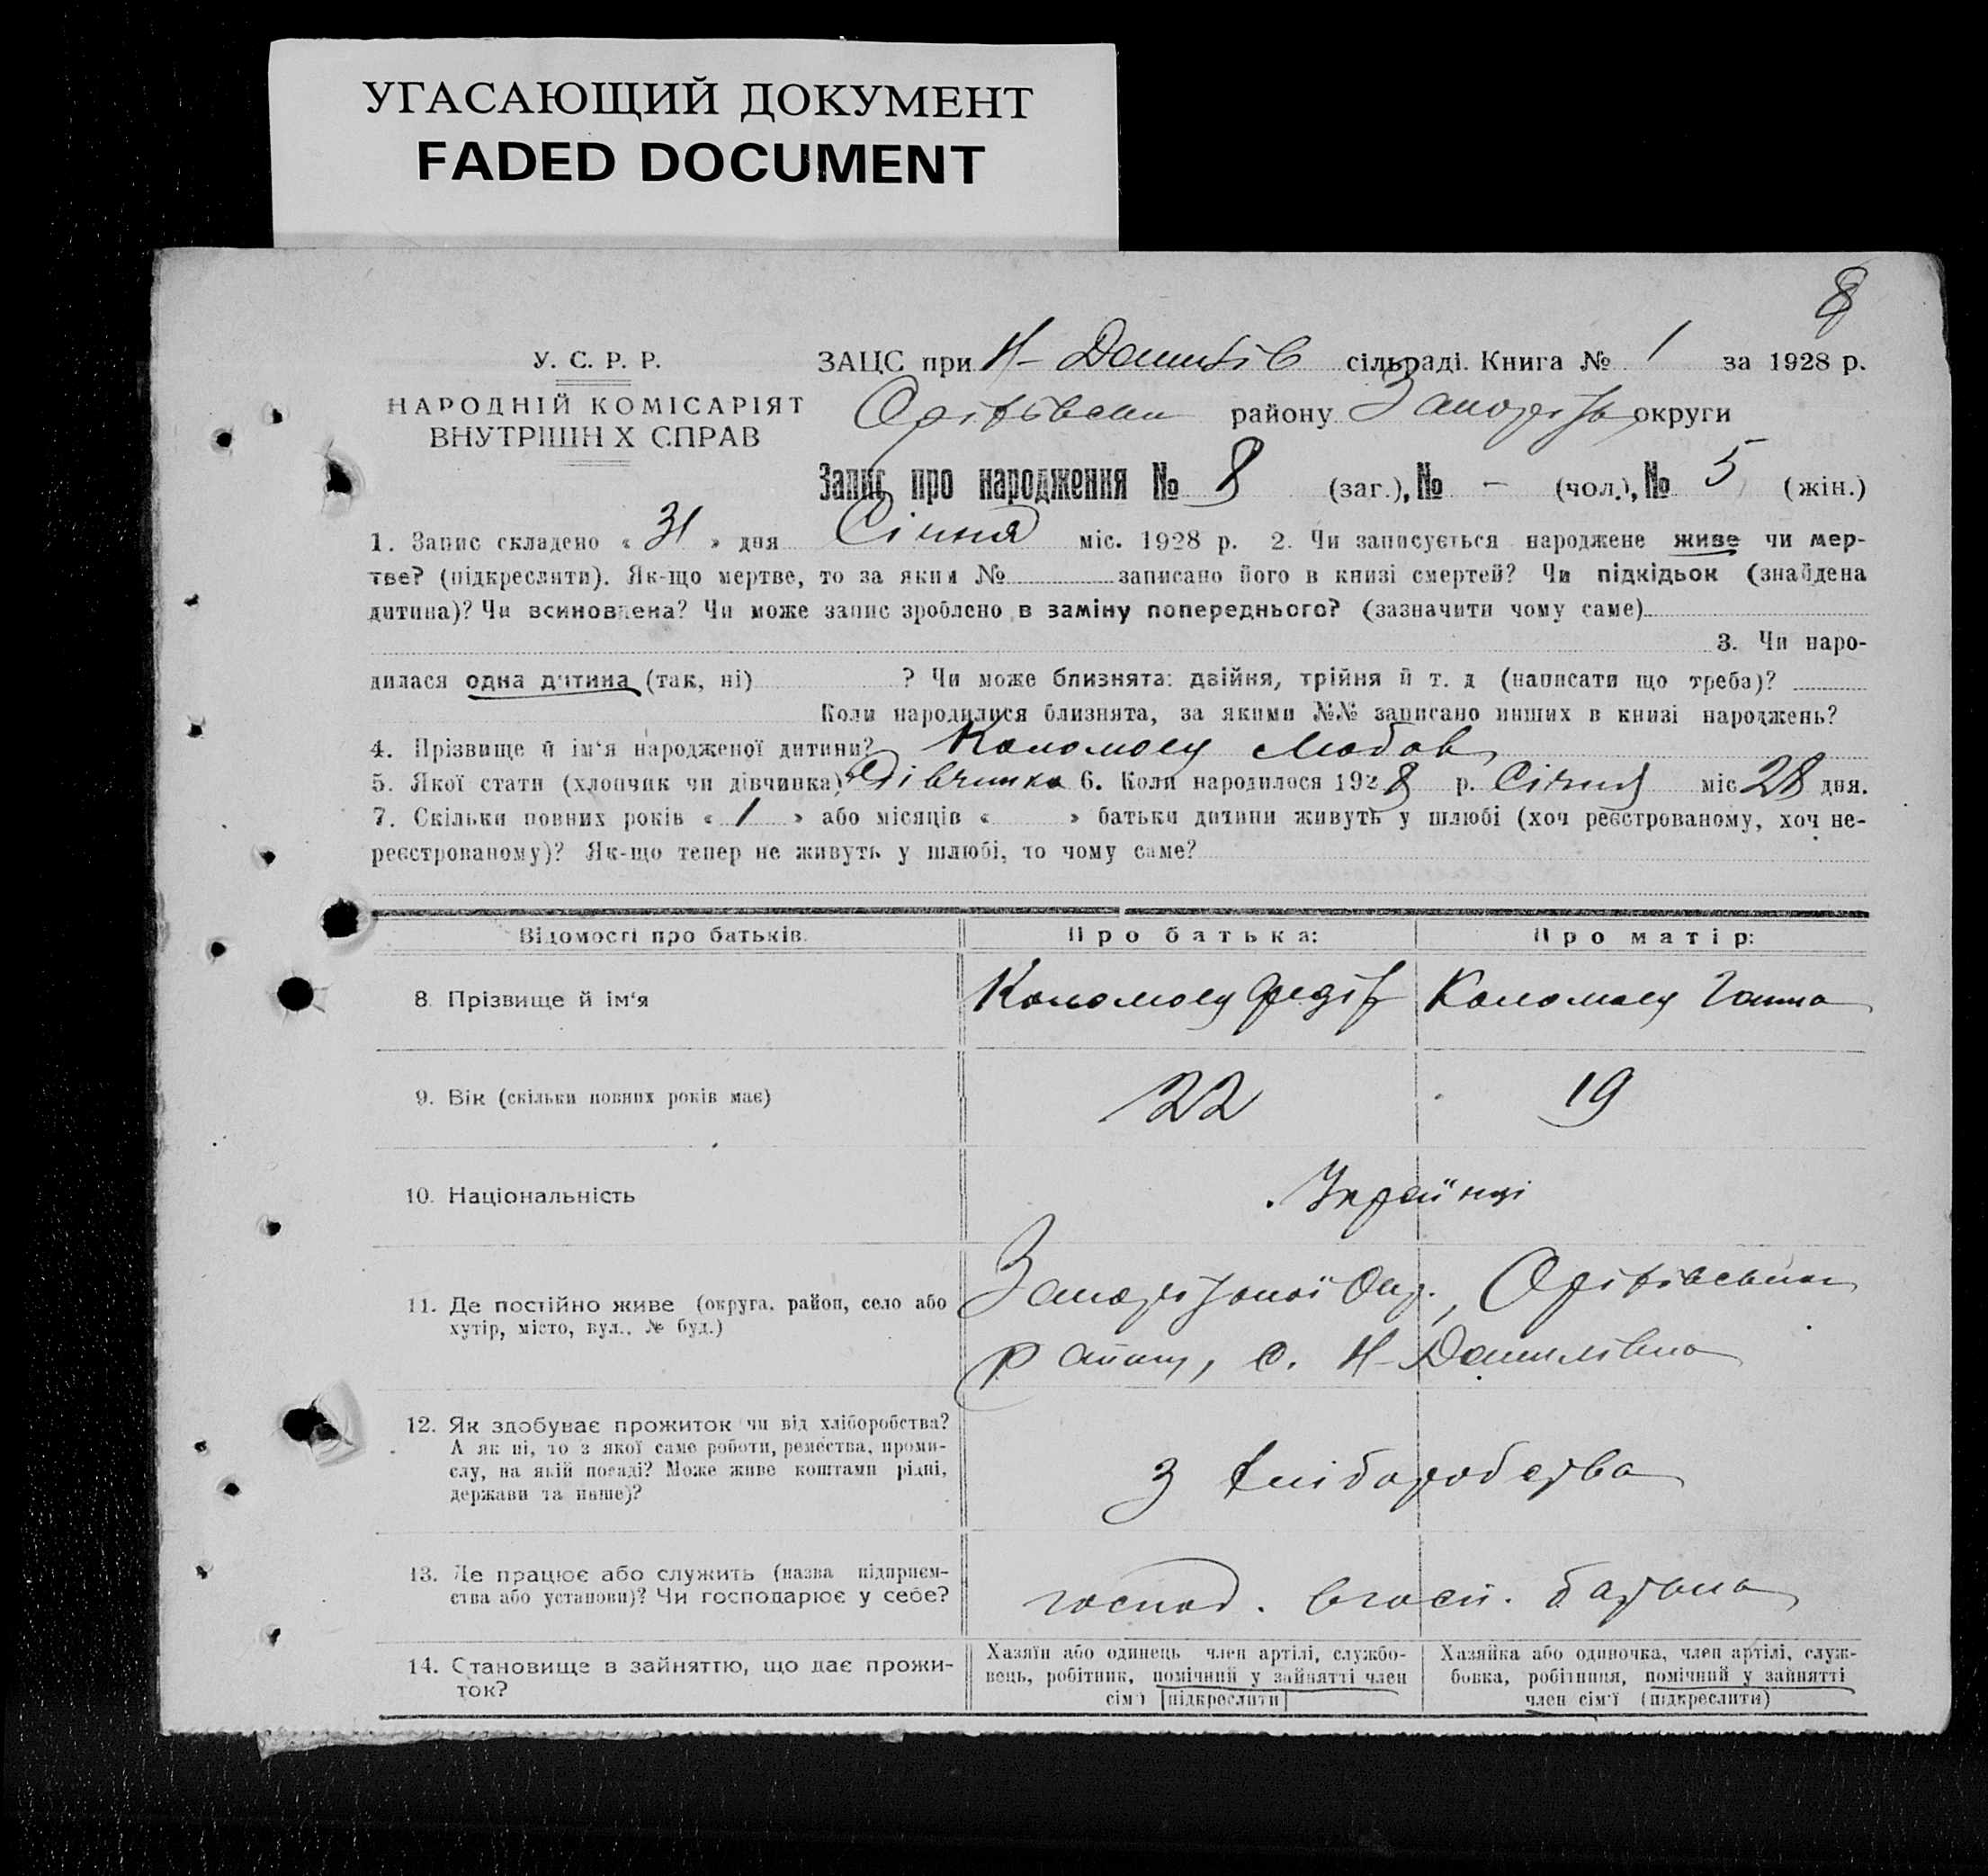 УГАСАЮЩИЙ ДОКУМЕНТ
FADED DOCUMENT
8
У. С. Р. Р.
НАРОДНІЙ КОМІСАРІЯТ
ВНУТРІШН Х СПРАВ
ЗАЦС при Н-Данилів сільраді. Книга № 1 за 1928 р.
Оріхівськ району Запоріз округи
Запис про народження № 8 (заг.), № - (чол.), № 5 (жін.)
1. Запис складено « 31 » дня Січня міс. 1928 р. 2. Чи записується народжене живе чи мер-
тве? (підкреслити). Як-що мертве, то за яким № записано його в книзі смертей? Чи підкідьок (знайдена
дитина)? Чи всиновлена? Чи може запис зроблено в заміну попереднього? (зазначити чому саме)
3. Чи наро-
дилася одна дитина (так, ні) ? Чи може близнята: двійня, трійня й т. д (написати що треба)?
Коли народилися близнята, за якими №№ записано инших в книзі народжень?
4. Прізвище й ім‘я народженої дитини? Коломоєц Любов
5. Якої стати (хлопчик чи дівчинка)? Дівчинка 6. Коли народилося 1928 р. Січня міс 28 дня.
7. Скільки повних років « 1 » або місяців « » батьки дитини живуть у шлюбі (хоч реєстрованому, хоч не-
реєстрованому)? Як-що тепер не живуть у шлюбі, то чому саме?
Відомості про батьків.
Про батька:
Про матір:
8. Прізвище й ім‘я
Коломоєц Федір
Коломоєц Ганна
9. Вік (скільки повних років має)
22
19
10. Національність
Українці
11. Де постійно живе (округа, район, село або
хутір, місто, вул., № буд.)
Запорізької Окр., Оріхівського
району, с. Н-Данилівка
12. Як здобуває прожиток чи від хліборобства?
А як ні, то з якої саме роботи, ремества, проми-
слу, на якій посаді? Може живе коштами рідні,
держави та инше)?
З хліборобства
13. Де працює або служить (назва підприєм-
ства або установи)? Чи господарює у себе?
господ. власн. батька
14. Становище в зайняттю, що дає прожи-
ток?
Хазяїн або одинець член артілі, службо-
вець, робітник, помічний у зайнятті член
сім‘ї [підкреслити]
Хазяйка або одиночка, член артілі, служ-
бовка, робітниця, помічний у зайнятті
член сім‘ї (підкреслити)